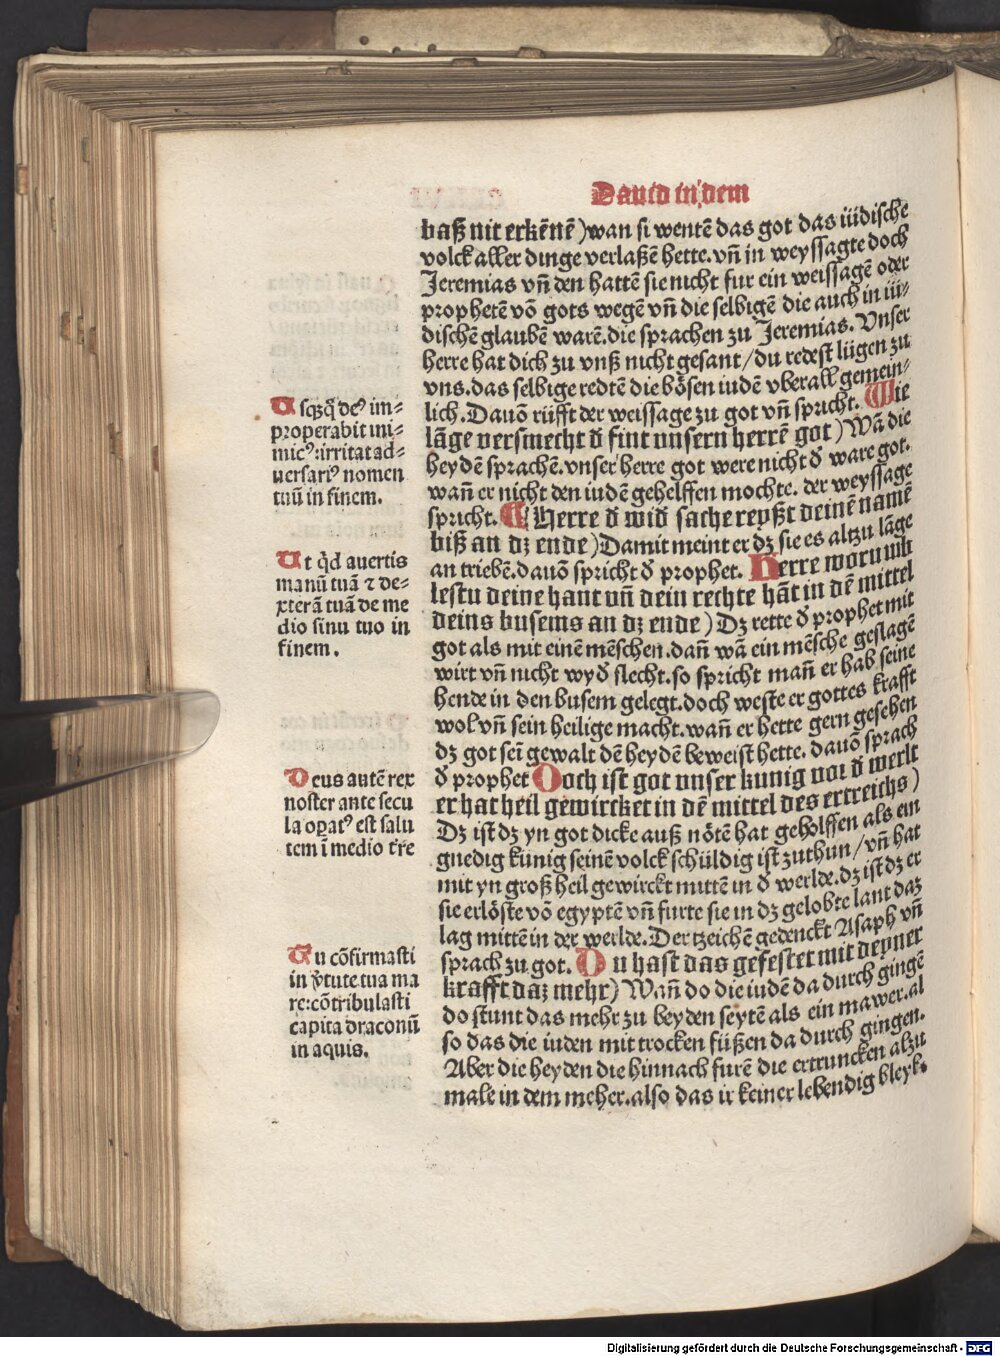 Dauid in dem
baß nit erkēnē) wan si wentē das got das iüdische
volck aller dinge verlaßē hette. vn̄ in weyssagte doch
Jeremias vn̄ den hattē sie nicht fur ein weissagē oder
prophetē vō gots wegē vn̄ die selbigē die auch in iü⸗
dischē glaubē warē. die sprachen zu Jeremias. Vnser
herre hat dich zu vnß nicht gesant / du redest lügen zu
vns. das selbige redtē die bösen iudē vberall gemein⸗
lich. Dauō rüfft der weissage zu got vn̄ spricht. Wie
lāge versmecht d̄ fint unsern herrē got) Wā die
heydē sprachē. vnser herre got were nicht d̄ ware got.
wan̄ er nicht den iudē gehelffen mochte. der weyssage
spricht. Herre d̄ wid̄ sache reyßt deinē namē
biß an dz ende) Damit meint er dz sie es altzu lāge
an triebē. dauō spricht d̄ prophet. Herre worumb
lestu deine hant vn̄ dein rechte hāt in dē mittel
deins busems an dz ende) Dz rette d̄ prophet mit
got als mit einē mēschen. dan̄ wā ein mēsche geslagē
wirt vn̄ nicht wyd̄ slecht. so spricht man̄ er hab seine
hende in den busem gelegt. doch weste er gottes krafft
wol vn̄ sein heilige macht. wan̄ er hette gern gesehen
dz got sei͞ gewalt dē heydē beweist hette. dauō sprach
d̄ prophet Doch ist got unser kunig vor d̄ werlt
er hat heil gewircket in dē mittel des ertreichs)
Dz ist dz yn got dicke auß nötē hat geholffen als ein
gnedig künig seinē volck schüldig ist zuthun / vn̄ hat
mit yn groß heil gewirckt mittē in d̄ werlde. dz ist dz er
sie erlöste vō egyptē vn̄ furte sie in dz gelobte lant daz
lag mittē in der werlde. Der tzeichē gedenckt Asaph vn̄
sprach zu got. Du hast das gefestet mit deyner
krafft daz mehr) Wan̄ do die iudē da durch gingē
do stunt das mehr zu beyden seytē als ein mawer. al
so das die iuden mit trocken füßen da durch gingen.
Aber die heyden die hinnach furē die ertruncken alzu
male in dem meher. also das ir keiner lebendig bleyb.
Usqzq̄ deꝰ im⸗
properabit ini⸗
micꝰ: irritat ad⸗
uersariꝰ nomen
tuū in finem.
Ut qd̄ auertis
manū tuā ⁊ de⸗
xterā tuā de me
dio sinu tuo in
finem.
Deus autē rex
noster ante secu
la oꝑatꝰ est salu
tem ī medio tr̄re
Tu cōfirmasti
in v̄tute tua ma
re: cōtribulasti
capita draconū
in aquis.
Digitalisierung gefördert durch die Deutsche Forschungsgemeinschaft - DFG